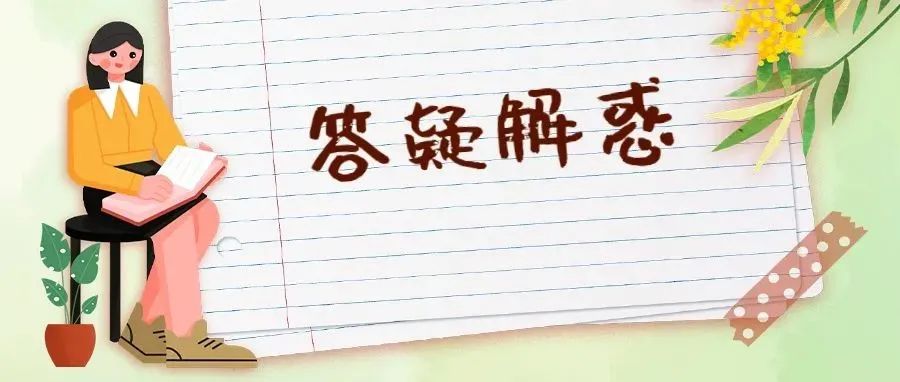 答疑解惑